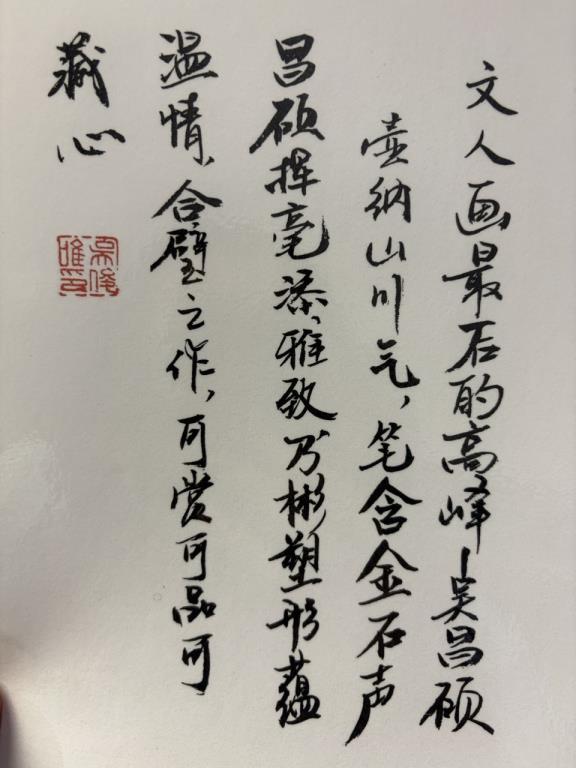 文人画最后的高峰—吴昌硕
壶纳山川气，笔含金石声
昌硕挥毫添雅致乃彬塑形蕴
温情、合璧之作，可赏可品可
藏心